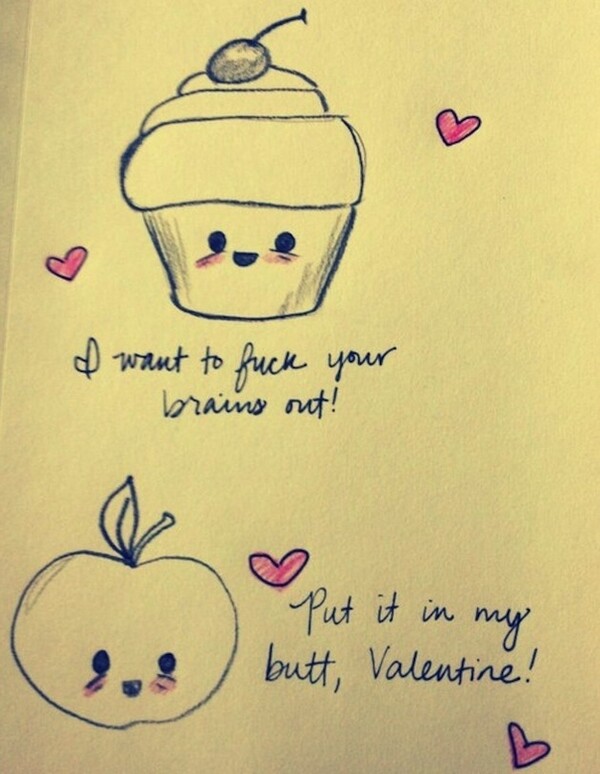 I want to fuck your
brains out!
Put it in my
butt, Valentine!